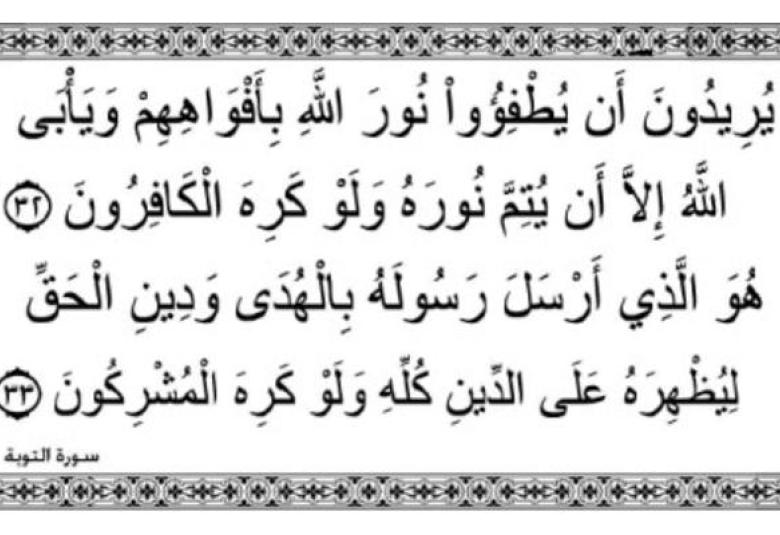 يُرِيدُونَ أَن يُطْفِؤُواْ نُورَ اللَّهِ بِأَفْوَاهِهِمْ وَيَأْبَى
اللَّهُ إِلاَّ أَن يُتِمَّ نُورَهُ وَلَوْ كَرِهَ الْكَافِرُونَ ٣٢
هُوَ الَّذِي أَرْسَلَ رَسُولَهُ بِالْهُدَى وَدِينِ الْحَقِّ
لِيُظْهِرَهُ عَلَى الدِّينِ كُلِّهِ وَلَوْ كَرِهَ الْمُشْرِكُونَ ٣٣
سورة التوبة